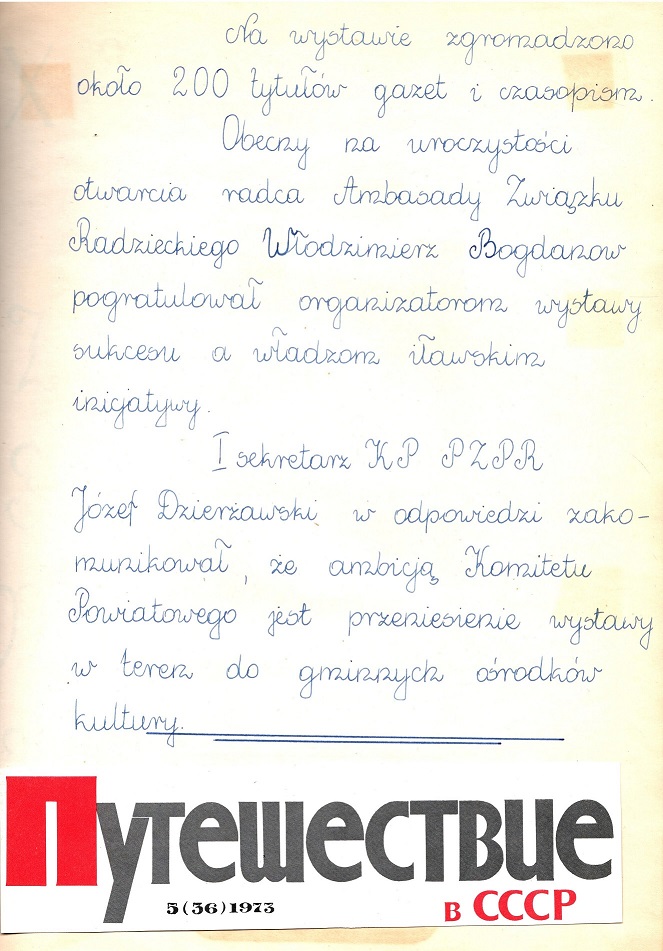 Na wystawie zgromadzono
około 200 tytułów gazet i czasopism.
Obecny na uroczystości
otwarcia radca Ambasady Związku
Radzieckiego Włodzimierz Bogdanow
pogratulował organizatorom wystawy
sukcesu a władzom iławskim
inicjatywy.
I sekretarz KP PZPR
Józef Dzierżawski w odpowiedzi zako-
munikował, że ambicją Komitetu
Powiatowego jest przeniesienie wystawy
w teren do gminnych ośrodków
kultury.
Путешествие
5(36)1973
в СССР